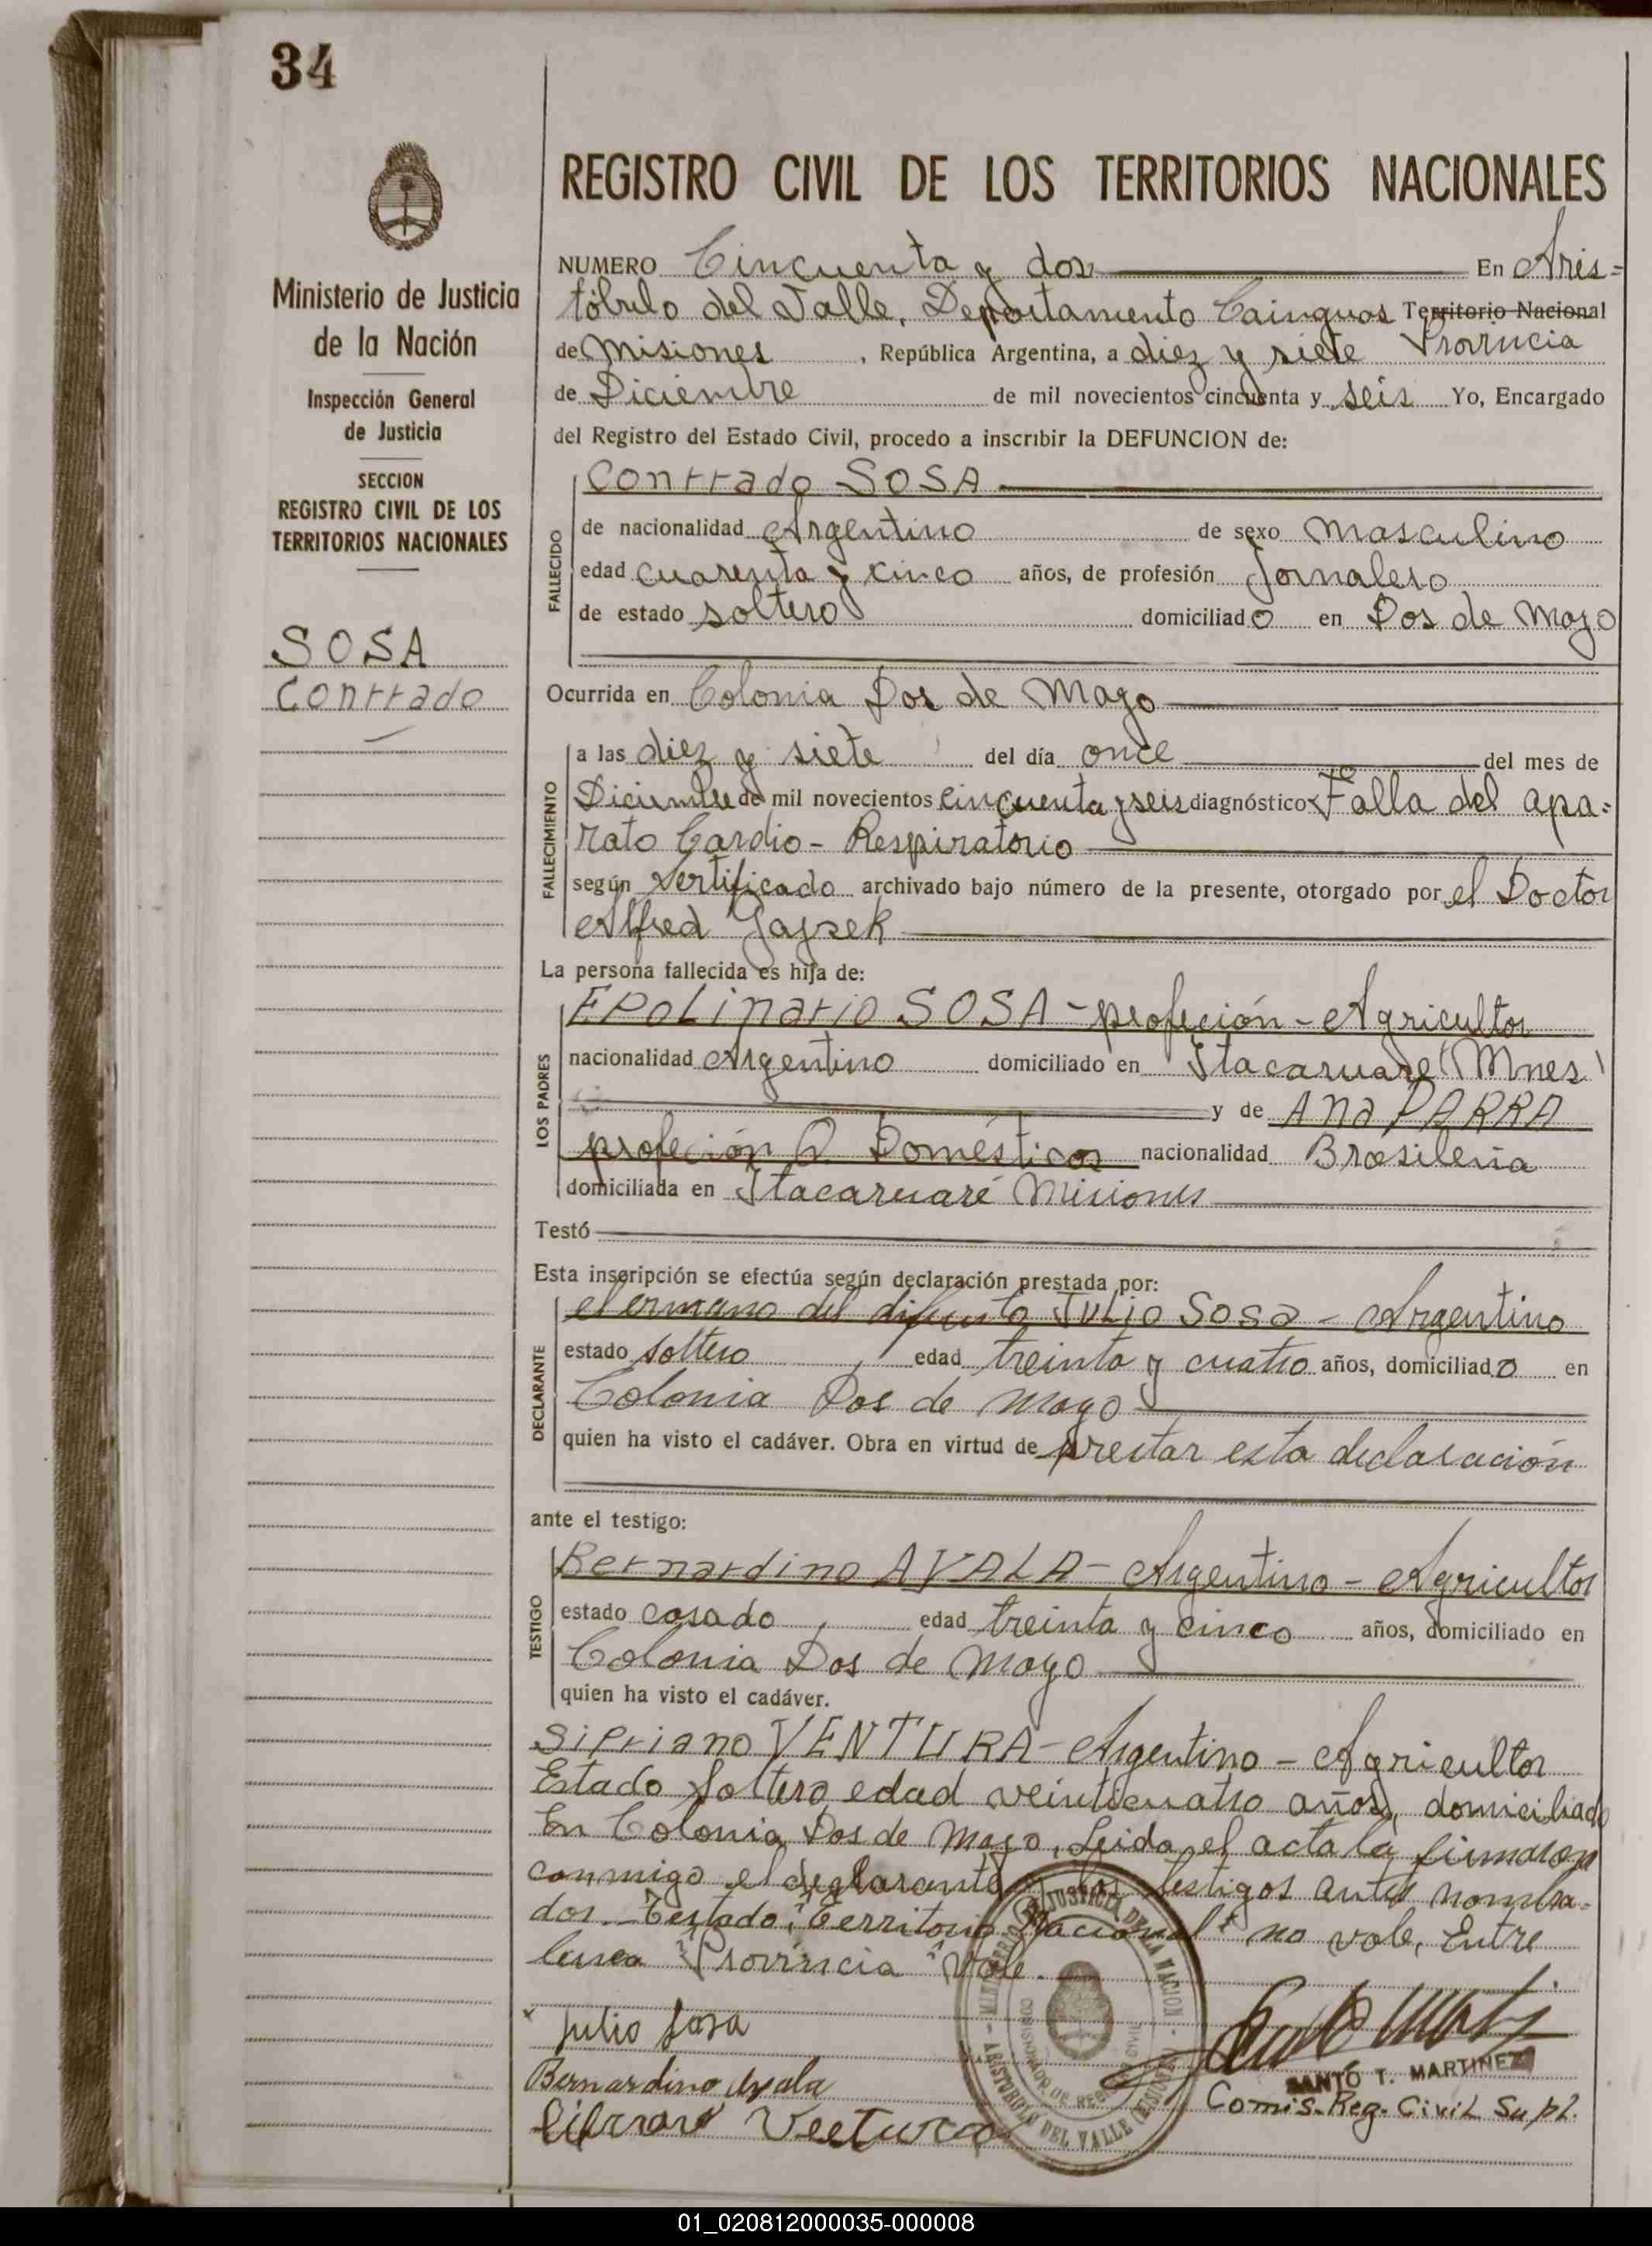 34
REGISTRO CIVIL DE LOS TERRITORIOS NACIONALES
Ministerio de Justicia
de la Nación
Inspección General
de Justicia
SECCION
REGISTRO CIVIL DE LOS
TERRITORIOS NACIONALES
SOSA
Conrrado
NUMERO Cincuenta y dos En Aris=
tóbulo del Valle, Departamento Cainguas Territorio Nacional
de Misiones , República Argentina, a diez y siete Provincia
de Diciembre de mil novecientos cincuenta y seis Yo, Encargado
del Registro del Estado Civil, procedo a inscribir la DEFUNCION de:
FALLECIDO
Conrrado SOSA
de nacionalidad Argentino de sexo Masculino
edad cuarenta y cinco años, de profesión Jornalero
de estado soltero domiciliado en Dos de Mayo
Ocurrida en Colonia Dos de Mayo
FALLECIMIENTO
a las diez y siete del día once del mes de
Diciembre de mil novecientos cincuenta y seis diagnóstico Falla del apa=
rato Cardio - Respiratorio
según Sertificado archivado bajo número de la presente, otorgado por el Doctor
Alfred Gajsek
La persona fallecida es hija de:
LOS PADRES
EPoLinario SOSA - profeción - Agricultor
nacionalidad Argentino domiciliado en Itacaruare (Mnes)
y de Ana PARRA
profeción Q. Domésticos nacionalidad Brasileña
domiciliada en Itacaruaré Misiones
Testó
Esta inscripción se efectúa según declaración prestada por:
DECLARANTE
el ermano del difunto JULio Sosa - Argentino
estado soltero, edad treinta y cuatro años, domiciliado en
Colonia Dos de Mayo
quien ha visto el cadáver. Obra en virtud de prestar esta declaración
ante el testigo:
TESTIGO
Bernardino AYALA - Argentino - Agricultor
estado casado, edad treinta y cinco años, domiciliado en
Colonia Dos de Mayo
quien ha visto el cadáver.
Sipriano VENTURA - Argentino - Agricultor
Estado Soltero edad veinticuatro años, domiciliado
En Colonia Dos de Mayo, Leida el acta la firmaron
conmigo el declarante y los testigos antes nombra=
dos. - Testado: "Territorio Nacional" no vale, Entre
linea "Provincia" Vale.
MINISTERIO DE JUSTICIA DE LA NACION
ARISTOBULO DEL VALLE (MISIONES)
Julio Sosa
Bernardino Ayala
Ventura
SANTO T. MARTINEZ
Comis. Reg. Civil Supl.
01_020812000035-000008